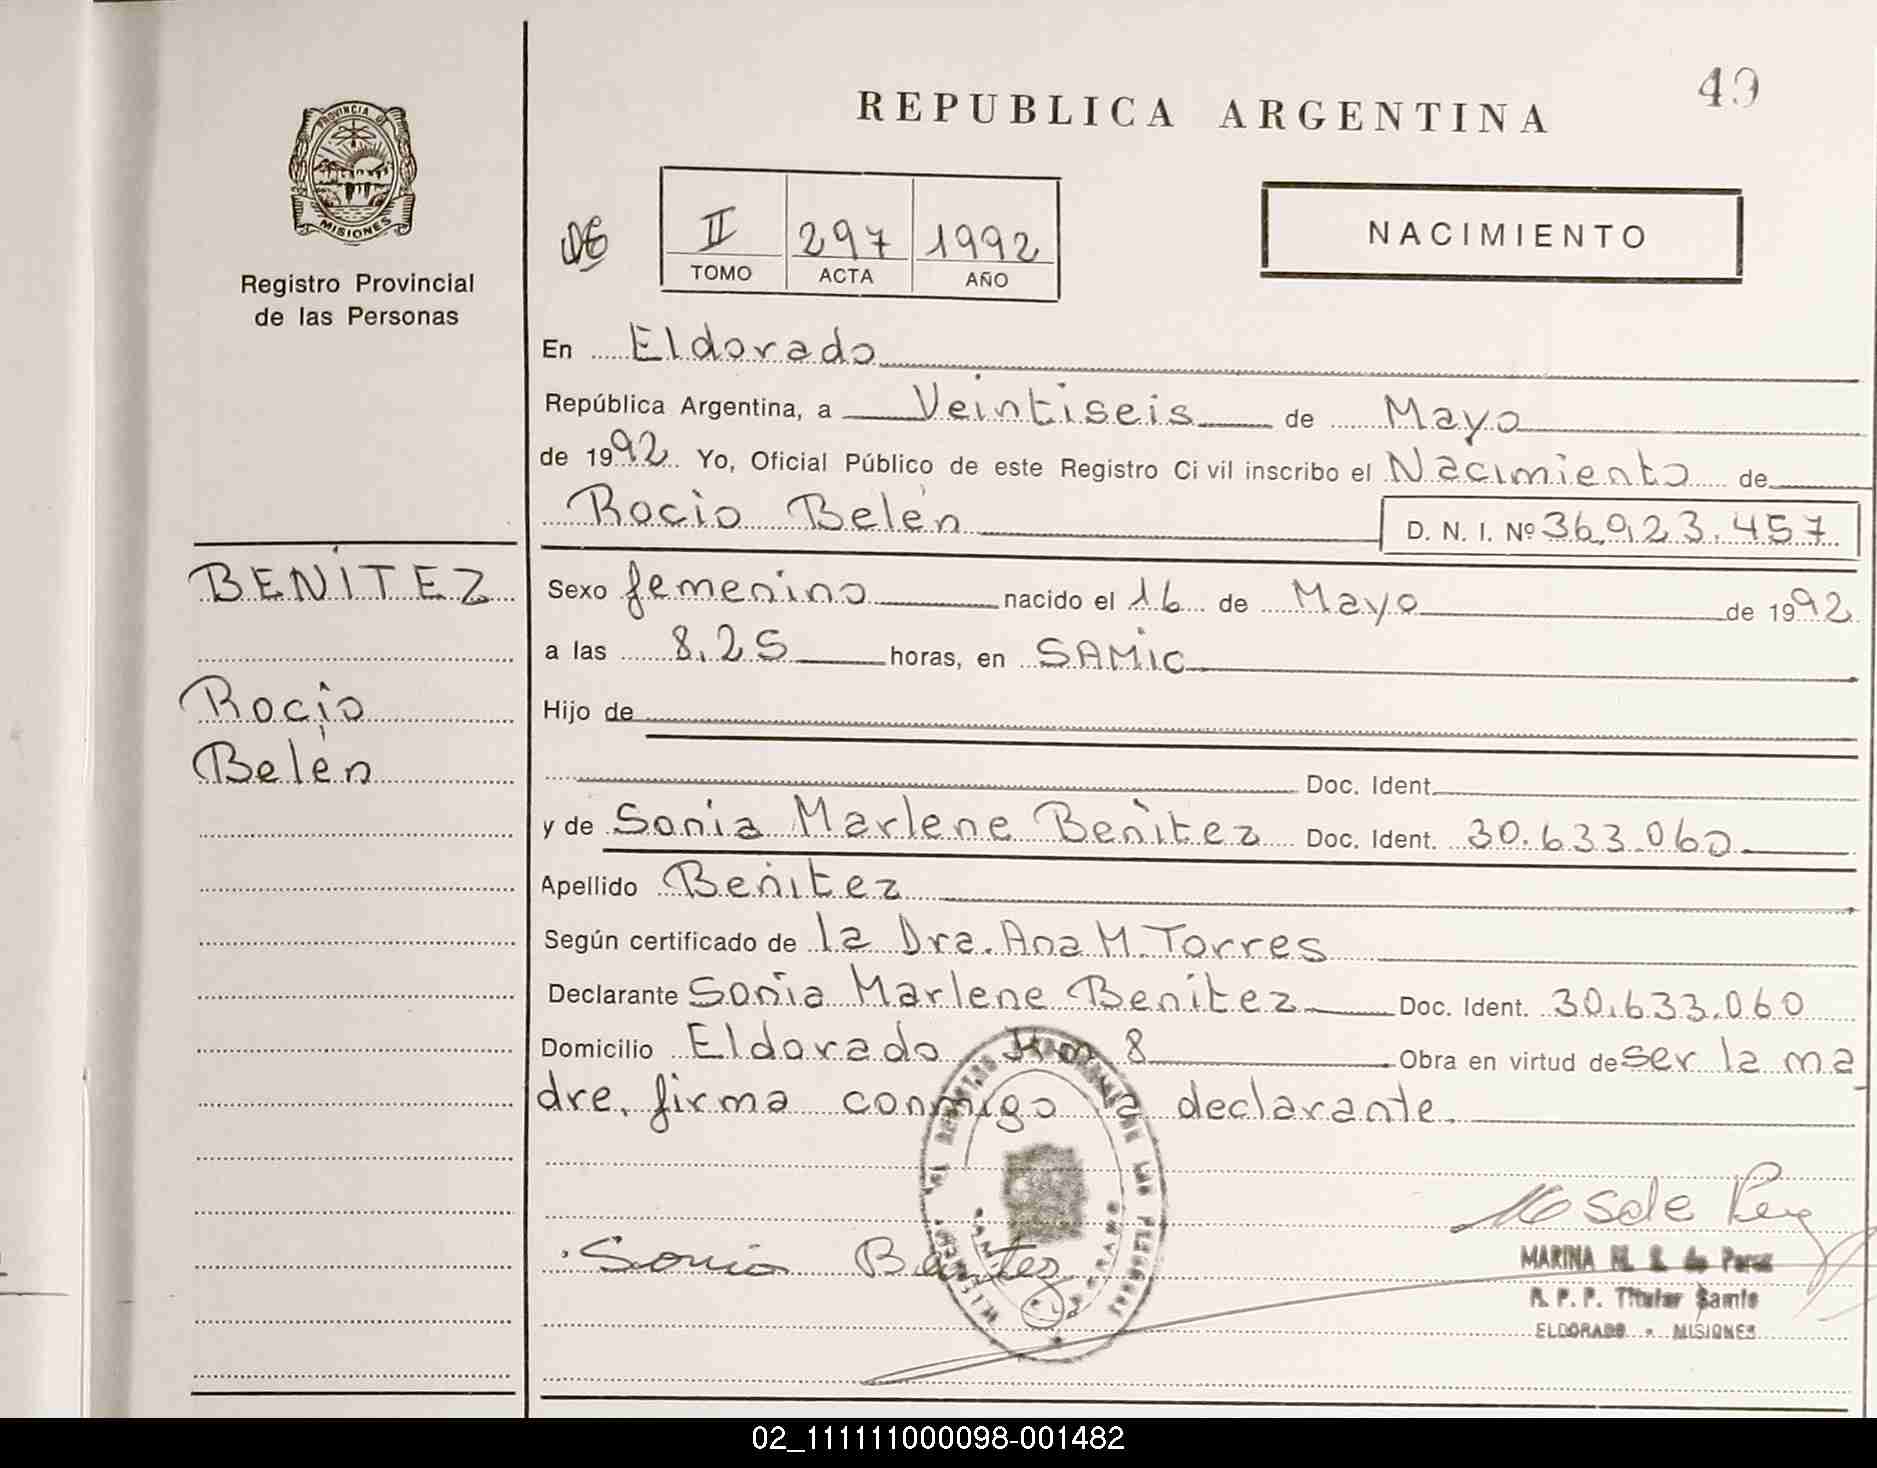 49
REPUBLICA ARGENTINA
PROVINCIA DE
MISIONES
Registro Provincial
de las Personas
II 297 1992
TOMO ACTA AÑO
NACIMIENTO
En Eldorado
República Argentina, a Veintiseis de Mayo
de 1992 Yo, Oficial Público de este Registro Civil inscribo el Nacimiento de
Rocio Belén D. N. I. Nº 36.923.457
BENITEZ
Rocio
Belén
Sexo femenino nacido el 16 de Mayo de 1992
a las 8,25 horas, en SAMIC
Hijo de
Doc. Ident.
y de Sonia Marlene Benitez Doc. Ident. 30.633.060
Apellido Benitez
Según certificado de la Dra. Ana M. Torres
Declarante Sonia Marlene Benitez Doc. Ident. 30.633.060
Domicilio Eldorado Km 8 Obra en virtud de ser la ma
dre, firma conmigo la declarante.
Sonia Benitez
MARINA M. de Perez
R. P. P. Titular Samic
ELDORADO - MISIONES
02_111111000098-001482